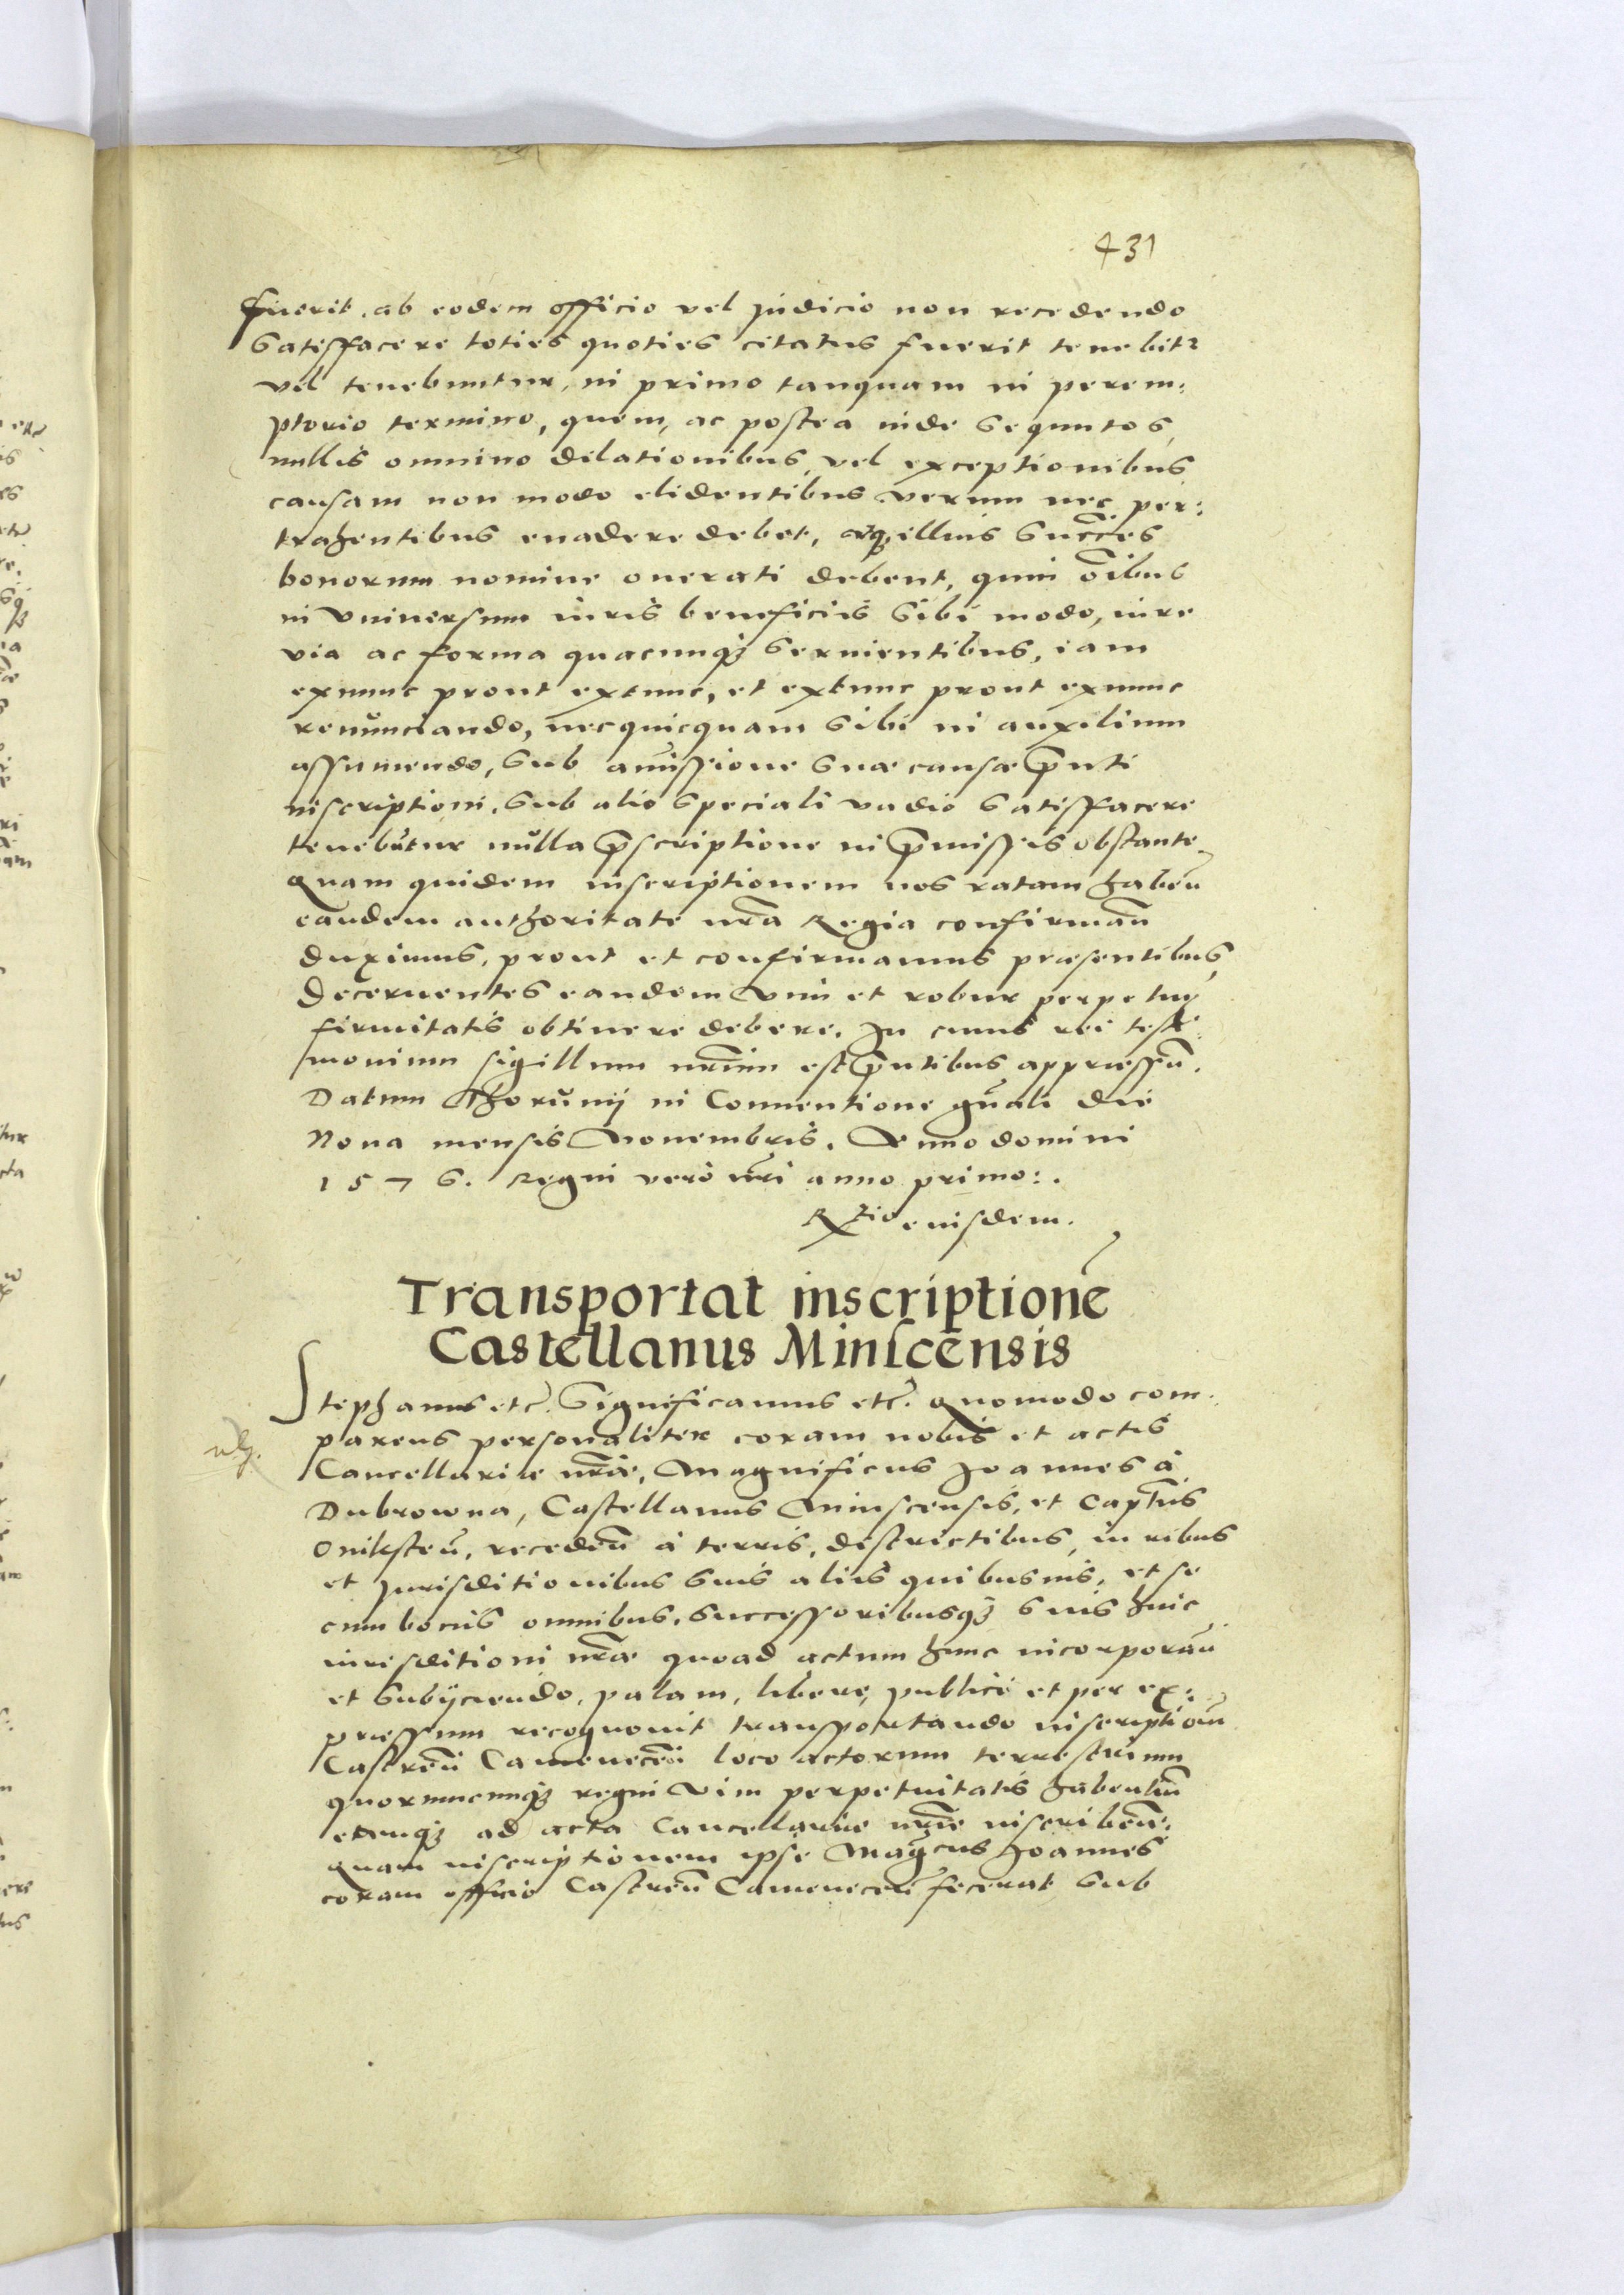 431
fuerit, ab eodem officio vel judicio non recedendo
satisfacere toties quoties citatus fuerit tenebitr
vel tenebuntur, in primo tanquam in perem:
ptorio termino, quem, ac postea inde sequutos,
nullis omnino dilationibus, vel exceptionibus
causam non modo elidentibus verum nec per:
trahentibus euadere debet, atq, illius succēs
bonorum nomine onerati debent, quin oībus
in vniuersum iuris beneficiis sibi modo, iure
via ac forma quacunqȝ seruientibus, iam
exnunc prout extunc, et extunc prout exnunc
renunciando, necquicquam sibi in auxilium
assumendo, sub amissione suæ causæ pnti
inscriptioni, sub alio speciali vadio satisfacere
tenebutur nulla pscriptione in pmissis obstante,
Quam quidem inscriptionem nos ratam habeñ
eandem authoritate nrā Regia confirmañ
duximus, prout et confirmamus præsentibus,
Decernentes eandem vim et robur perpetuæ
firmitatis obtinere debere. In cuius rei testi:
monium sigillum nrūm est pntibus appressū.
Datum Thorunij in Conuentione gnāli die
Nona mensis Nouembris. Anno domini
1576. Regni verò nrī anno primo:.
Rtio eiusdem.
Transportat inscriptionē
Castellanus Minscensis
Stephanus etc. Significamus etc. Quomodo com:
parens personaliter coram nobis et actis
Cancellariæ nræ, Magnificus Joannes à
Dubrowna, Castellanus Minscensis, et Captūs
recedeñ à terris, districtibus, iuribus
et Jurisditionibus suis aliis quibusuis, et se
cum bonis omnibus, successoribusqȝ suis huic
iurisditioni nræ quoad actum hunc incorporañ
et subijciendo, palam, libere, publicè et per ex:
pressum recognouit transportando inscriptionē
Castreñ Cameneceñ loco actorum terrestrium
quorumcunqȝ regni vim perpetuitatis habentiū
eamqȝ ad acta Cancellariæ nræ inscribeñ.
Quam inscriptionem ipse Magcus Joannes
coram officio Castreñ Cameneceñ fecerat sub